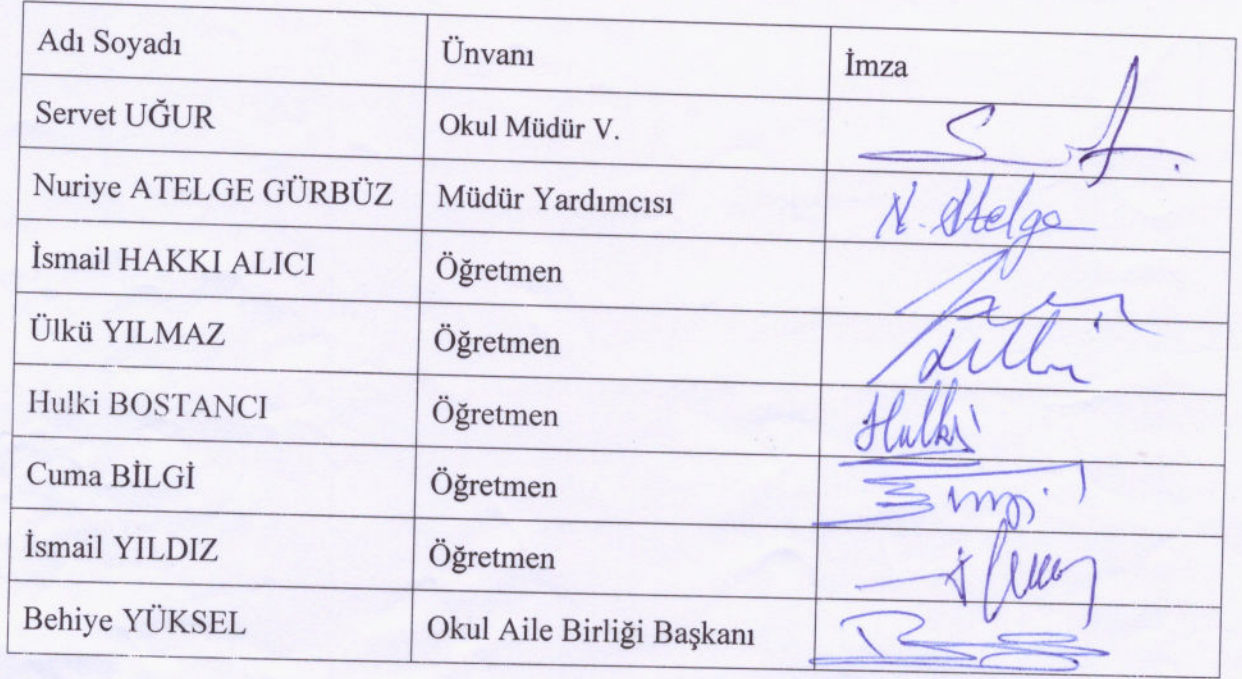 Adı Soyadı Ünvanı İmza
Servet UĞUR Okul Müdür V.
Nuriye ATELGE GÜRBÜZ Müdür Yardımcısı N. Atelge
İsmail HAKKI ALICI Öğretmen
Ülkü YILMAZ Öğretmen
Hulki BOSTANCI Öğretmen Hulki
Cuma BİLGİ Öğretmen
İsmail YILDIZ Öğretmen
Behiye YÜKSEL Okul Aile Birliği Başkanı